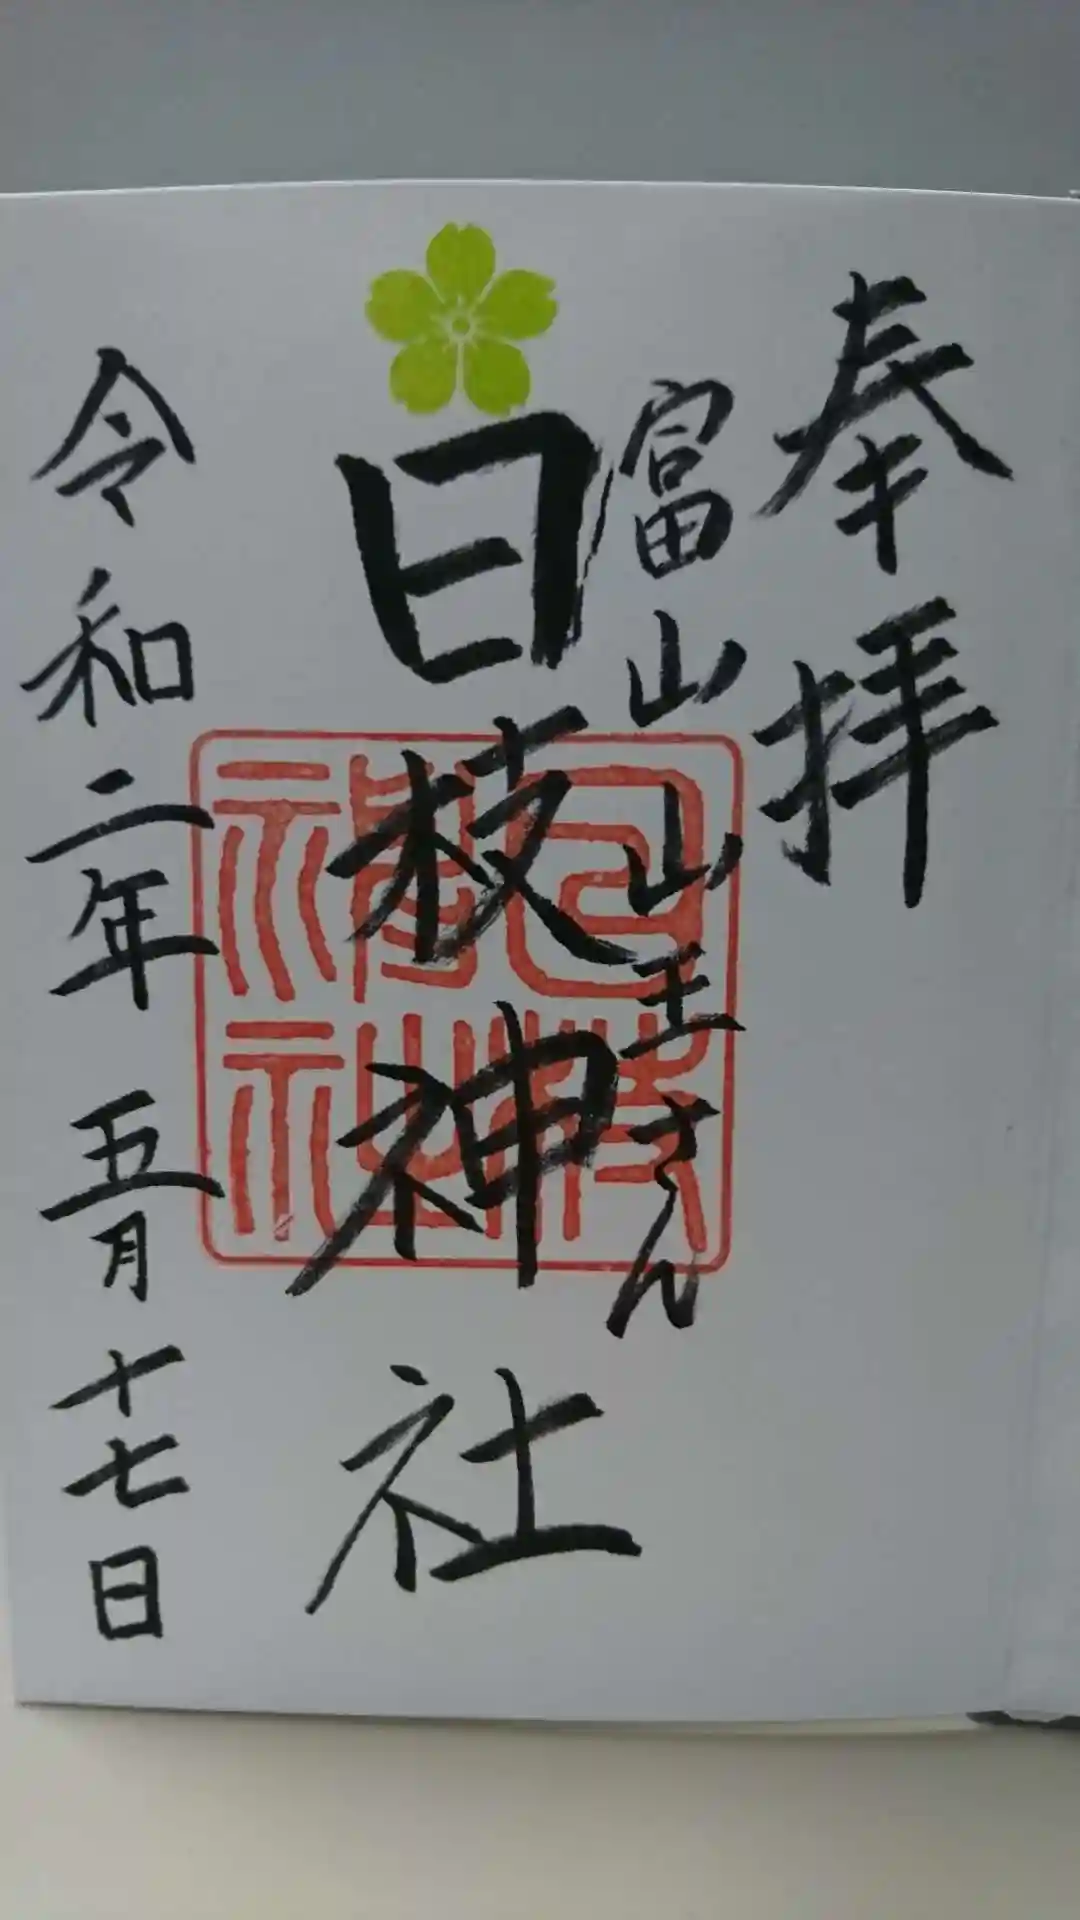 奉拝
富山山王さん
日枝神社
日枝神社
令和二年五月十七日